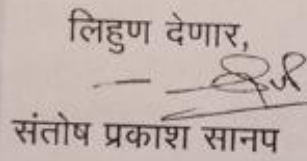 लिहुण देणार,
संतोष प्रकाश सानप